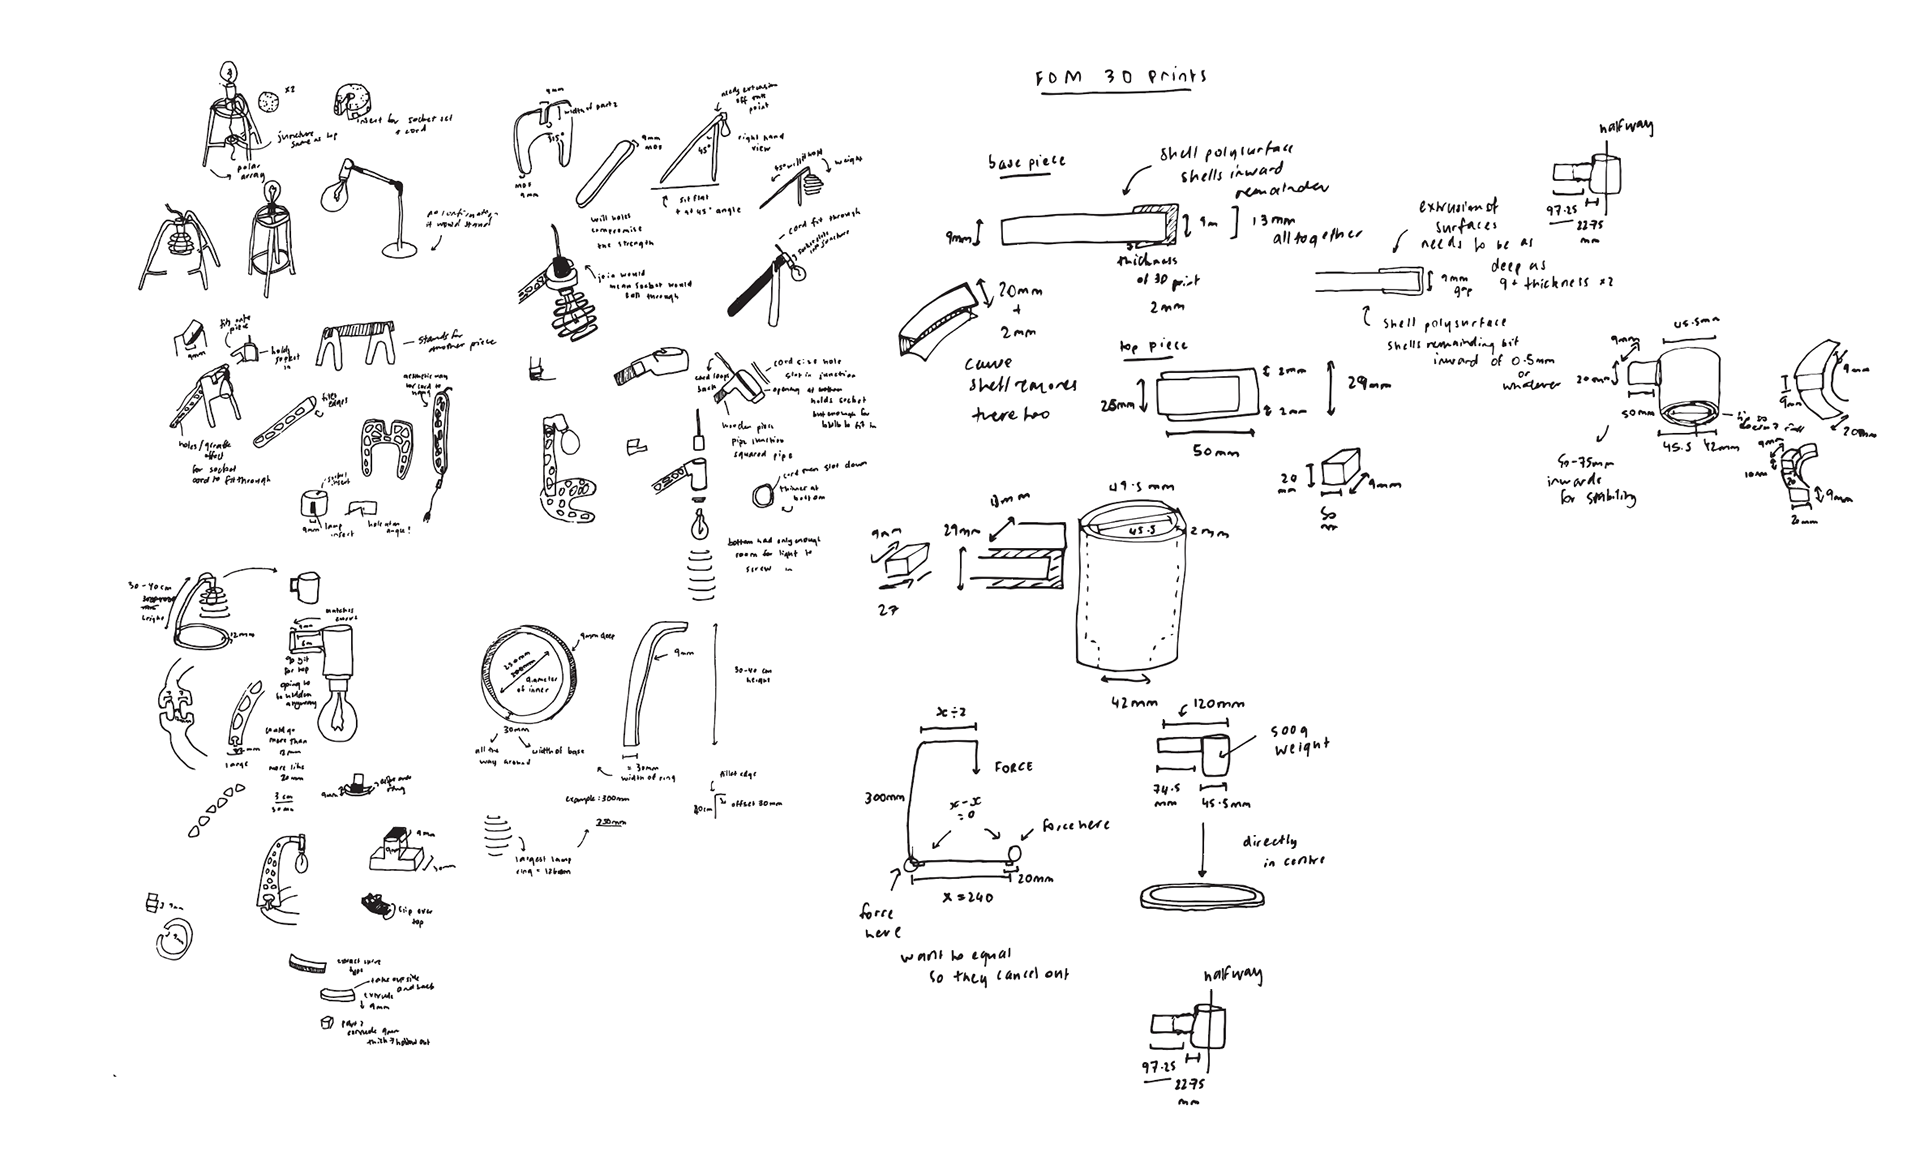 FDM 3D Prints
x2
insert for socket set
+ cord
juncture
same as top
polar
array
no confirmation
it would stand
9mm
width of part 2
115°
MDF
9mm
9mm
MDF
needs extension
off this
point
right hand
view
45°
sit flat
+ at 45° angle
weight
will holes
compromise
the strength
cord fit through
join would
mean socket would
fall through
fits onto
piece
9mm
holds
socket
in
stands for
another piece
holes/giraffe
effect
for socket
cord to fit through
fillet
edges
aesthetic way
for cord to
hang
socket
insert
9mm
lamp
insert
hole at an
angle?
cord loops
back
cord size hole
slot in junction
opening at bottom
holds socket
but enough for
bulb to fit in
wooden piece
pipe junction
squared pipe
cord then slot down
thinner at
bottom
bottom had only enough
room for light to
screw in
30-40cm
height
12mm
matches
curve
9mm
going to
be hidden
anyway
large
could go
more than
12mm
more like
20mm
3cm
30mm
9mm
9mm
30mm
slip over
top
extract curve
take outside
and back
extrude
9mm
part 2
extrude 9mm
thick + hollow out
9mm deep
250mm
diameter
of inner
30mm
all the
way around
width of base
9mm
30-40cm
height
= 30mm
width of ring
example: 300mm
230mm
fillet edge
40cm
offset 30mm
largest lamp
ring = 126mm
base piece
shell polysurface
shells inward
remainder
9mm
9m
13mm
all together
thickness
of 3D print
2mm
20mm
+
2mm
cause
shell removes
there too
top piece
25mm
2mm
2mm
29mm
50mm
20
mm
50
mm
9mm
9mm
27
29mm
49.5mm
45.5
2mm
42mm
x÷2
FORCE
300mm
x-x
=0
force here
20mm
x=240
force
here
want to equal
so they cancel out
120mm
500g
weight
74.5
mm
45.5mm
directly
in centre
halfway
97.25
22.75
mm
halfway
97.25
22.75
mm
extrusion of
surfaces
needs to be as
deep as
9 + thickness x2
9mm
gap
shell polysurface
shells remainding bit
inward of 0.5mm
or
whatever
45.5mm
9mm
20mm
50mm
45.5
42mm
lip so
doesn't fall
50-75mm
inwards
for stability
9mm
9mm
20mm
9mm
10mm
20
9mm
20mm